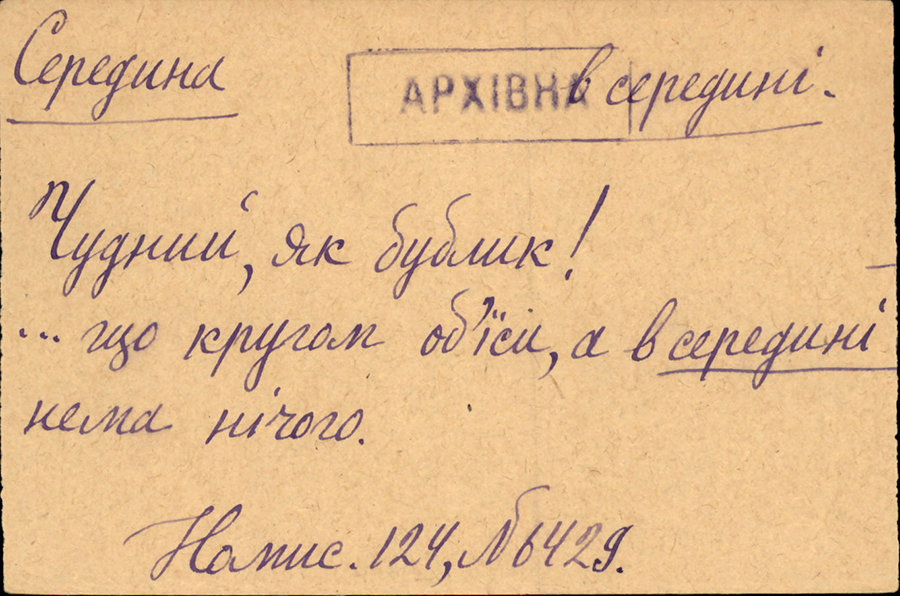 Середина АРХІВНА в середині.
Чудний, як бублик!
... що кругом об'їси, а в середині
нема нічого.
Номис. 124, № 6429.